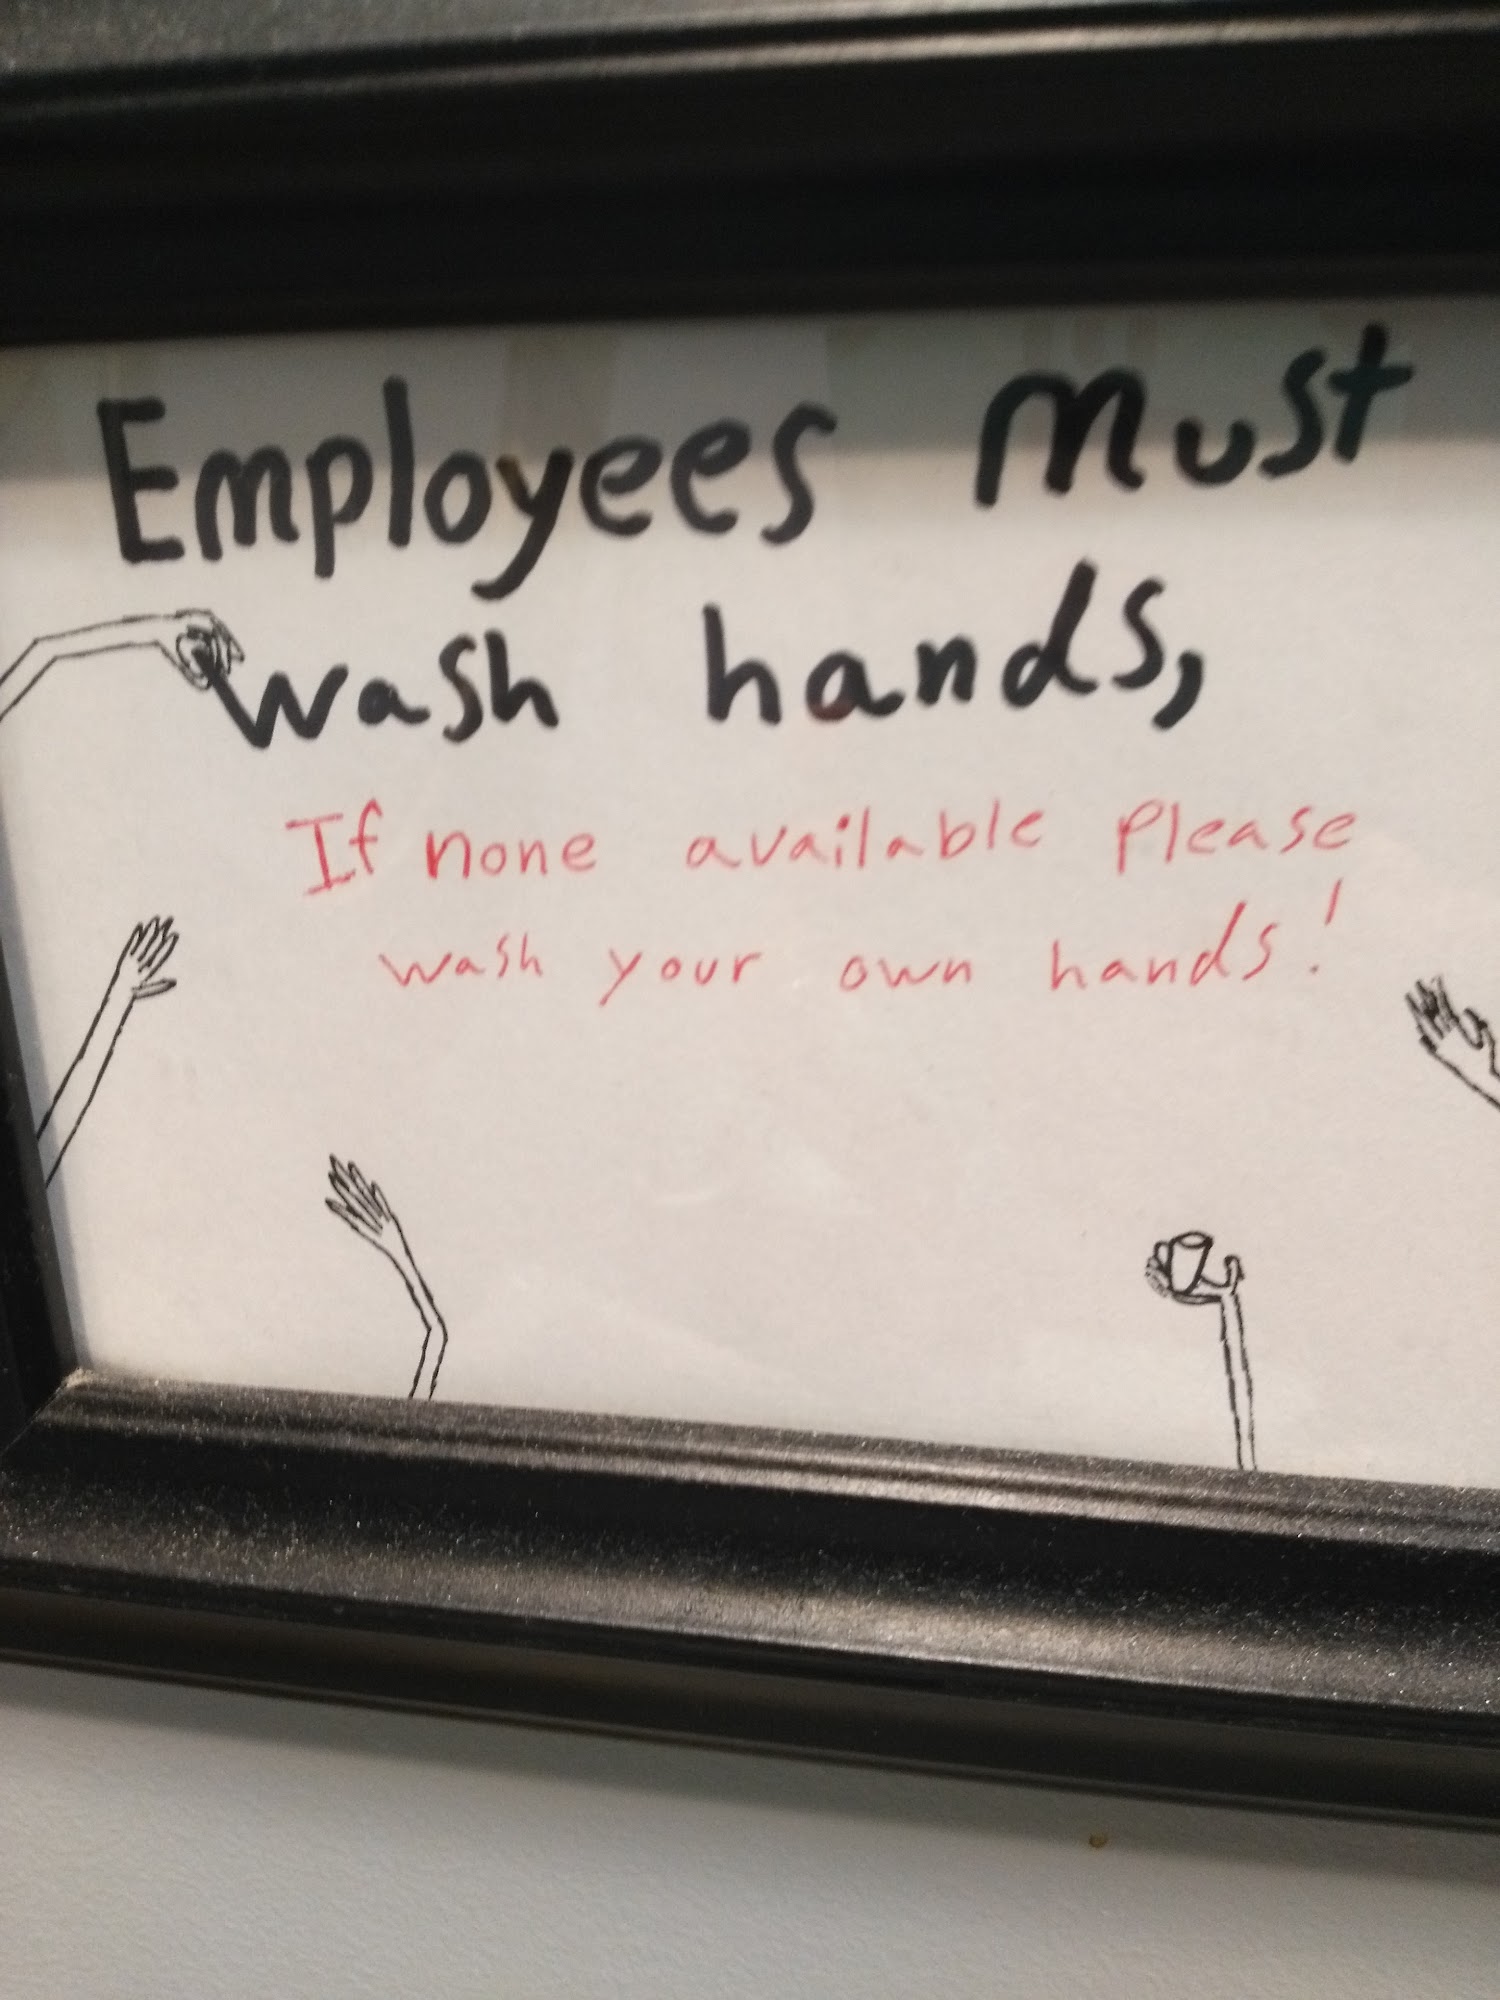 Employees must
wash hands,
If none available please
wash your own hands!